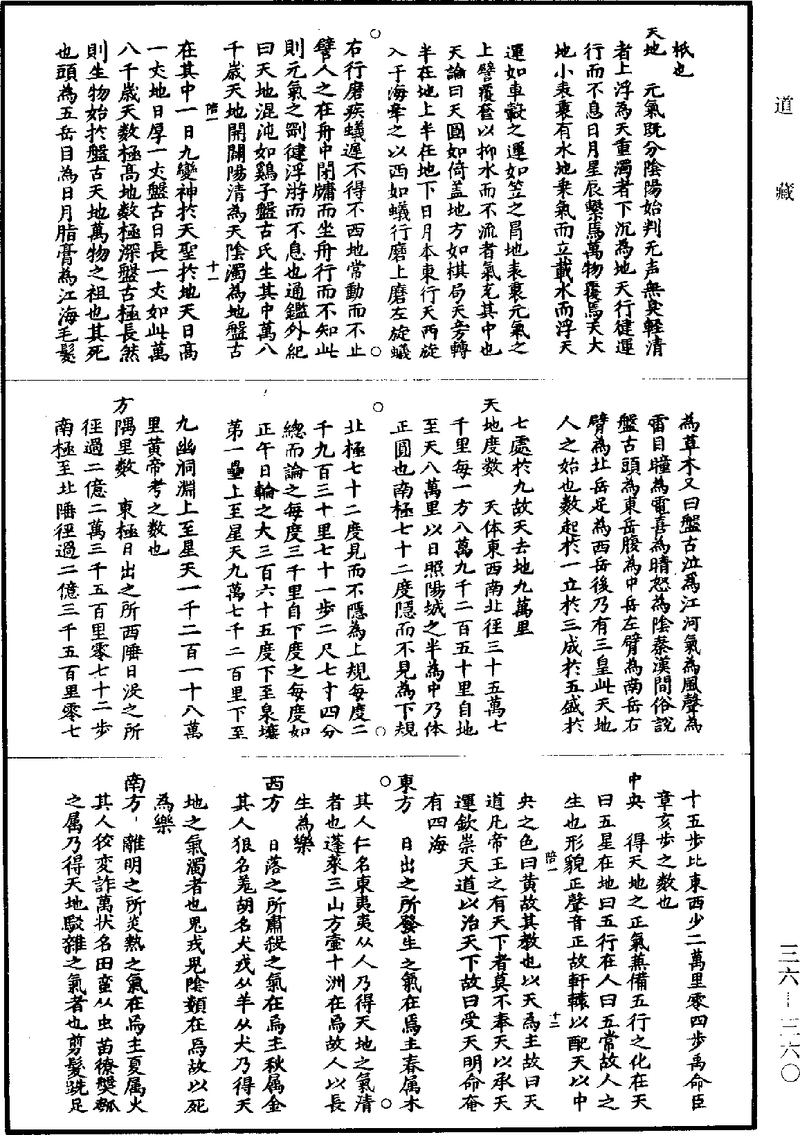 道藏
祇也
天地　元氣既分陰陽始判无声無臭輕清
者上浮為天重濁者下沉為地天行健運
行而不息日月星辰繫焉萬物覆焉天大
地小表裏有水地乗氣而立載水而浮天
運如車轂之運如笠之冐地表裏元氣之
上譬覆奩以抑水而不流者氣充其中也
天論曰天圓如倚盖地方如棋局天旁轉
半在地上半在地下日月本東行天西旋
入于海牽之以西如蟻行磨上磨左旋蟻
右行磨疾蟻遲不得不西地常動而不止
譬人之在舟中閉牖而坐舟行而不知此
則元氣之劉健浮游而不息也通鑑外紀
曰天地混沌如鷄子盤古氏生其中萬八
千歳天地開闢陽清為天陰濁為地盤古
陪一　十一
在其中一日九變神於天聖於地天日高
一丈地日厚一丈盤古日長一丈如此萬
八千歳天数極高地数極深盤古極長然
則生物始於盤古天地萬物之祖也其死
也頭為五岳目為日月脂膏為江海毛髮
為草木又曰盤古泣為江河氣為風聲為
雷目瞳為電喜為晴怒為陰秦漢間俗説
盤古頭為東岳腹為中岳左臂為南岳右
臂為北岳足為西岳後乃有三皇此天地
人之始也数起於一立於三成於五盛於
七處於九故天去地九萬里
天地度数　天体東西南北徑三十五萬七
千里每一方八萬九千二百五十里自地
至天八萬里以日照陽城之半為中乃体
正圓也南極七十二度隱而不見為下規
北極七十二度見而不隱為上規每度二
千九百三十里七十一歩二尺七寸四分
緫而論之每度三千里自下度之每度如
正午日輪之大三百六十五度下至泉壤
第一壘上至星天九萬七千二百里下至
九幽洞淵上至星天一千二百一十八萬
里黄帝考之数也
方隅里数　東極日出之所西陲日沒之所
徑過二億二萬三千五百里零七十二歩
南極至北陲徑過二億三千五百里零七
十五歩比東西少二萬里零四歩禹命臣
章亥歩之数也
中央　得天地之正氣蒸備五行之化在天
曰五星在地曰五行在人曰五常故人之
生也形貌正聲音正故軒轅以配天以中
陪一　十二
央之色曰黄故其教也以天為主故曰天
道凡帝王之有天下者莫不奉天以承天
運欽崇天道以治天下故曰受天明命奄
有四海
東方　日出之所發生之氣在焉主春属木
其人仁名東夷夷从人乃得天地之氣清
者也蓬萊三山方壷十洲在焉故人以長
生為樂
西方　日落之所肅殺之氣在焉主秋属金
其人狠名羗胡名犬戎从羊从犬乃得天
地之氣濁者也鬼戎鬼陰類在焉故以死
為樂
南方　離明之所炎熱之氣在焉主夏属火
其人狡変詐萬状名田蛮从虫苗獠獎瓠
之属乃得天地駁雜之氣者也剪髮跣足
三六－三六〇